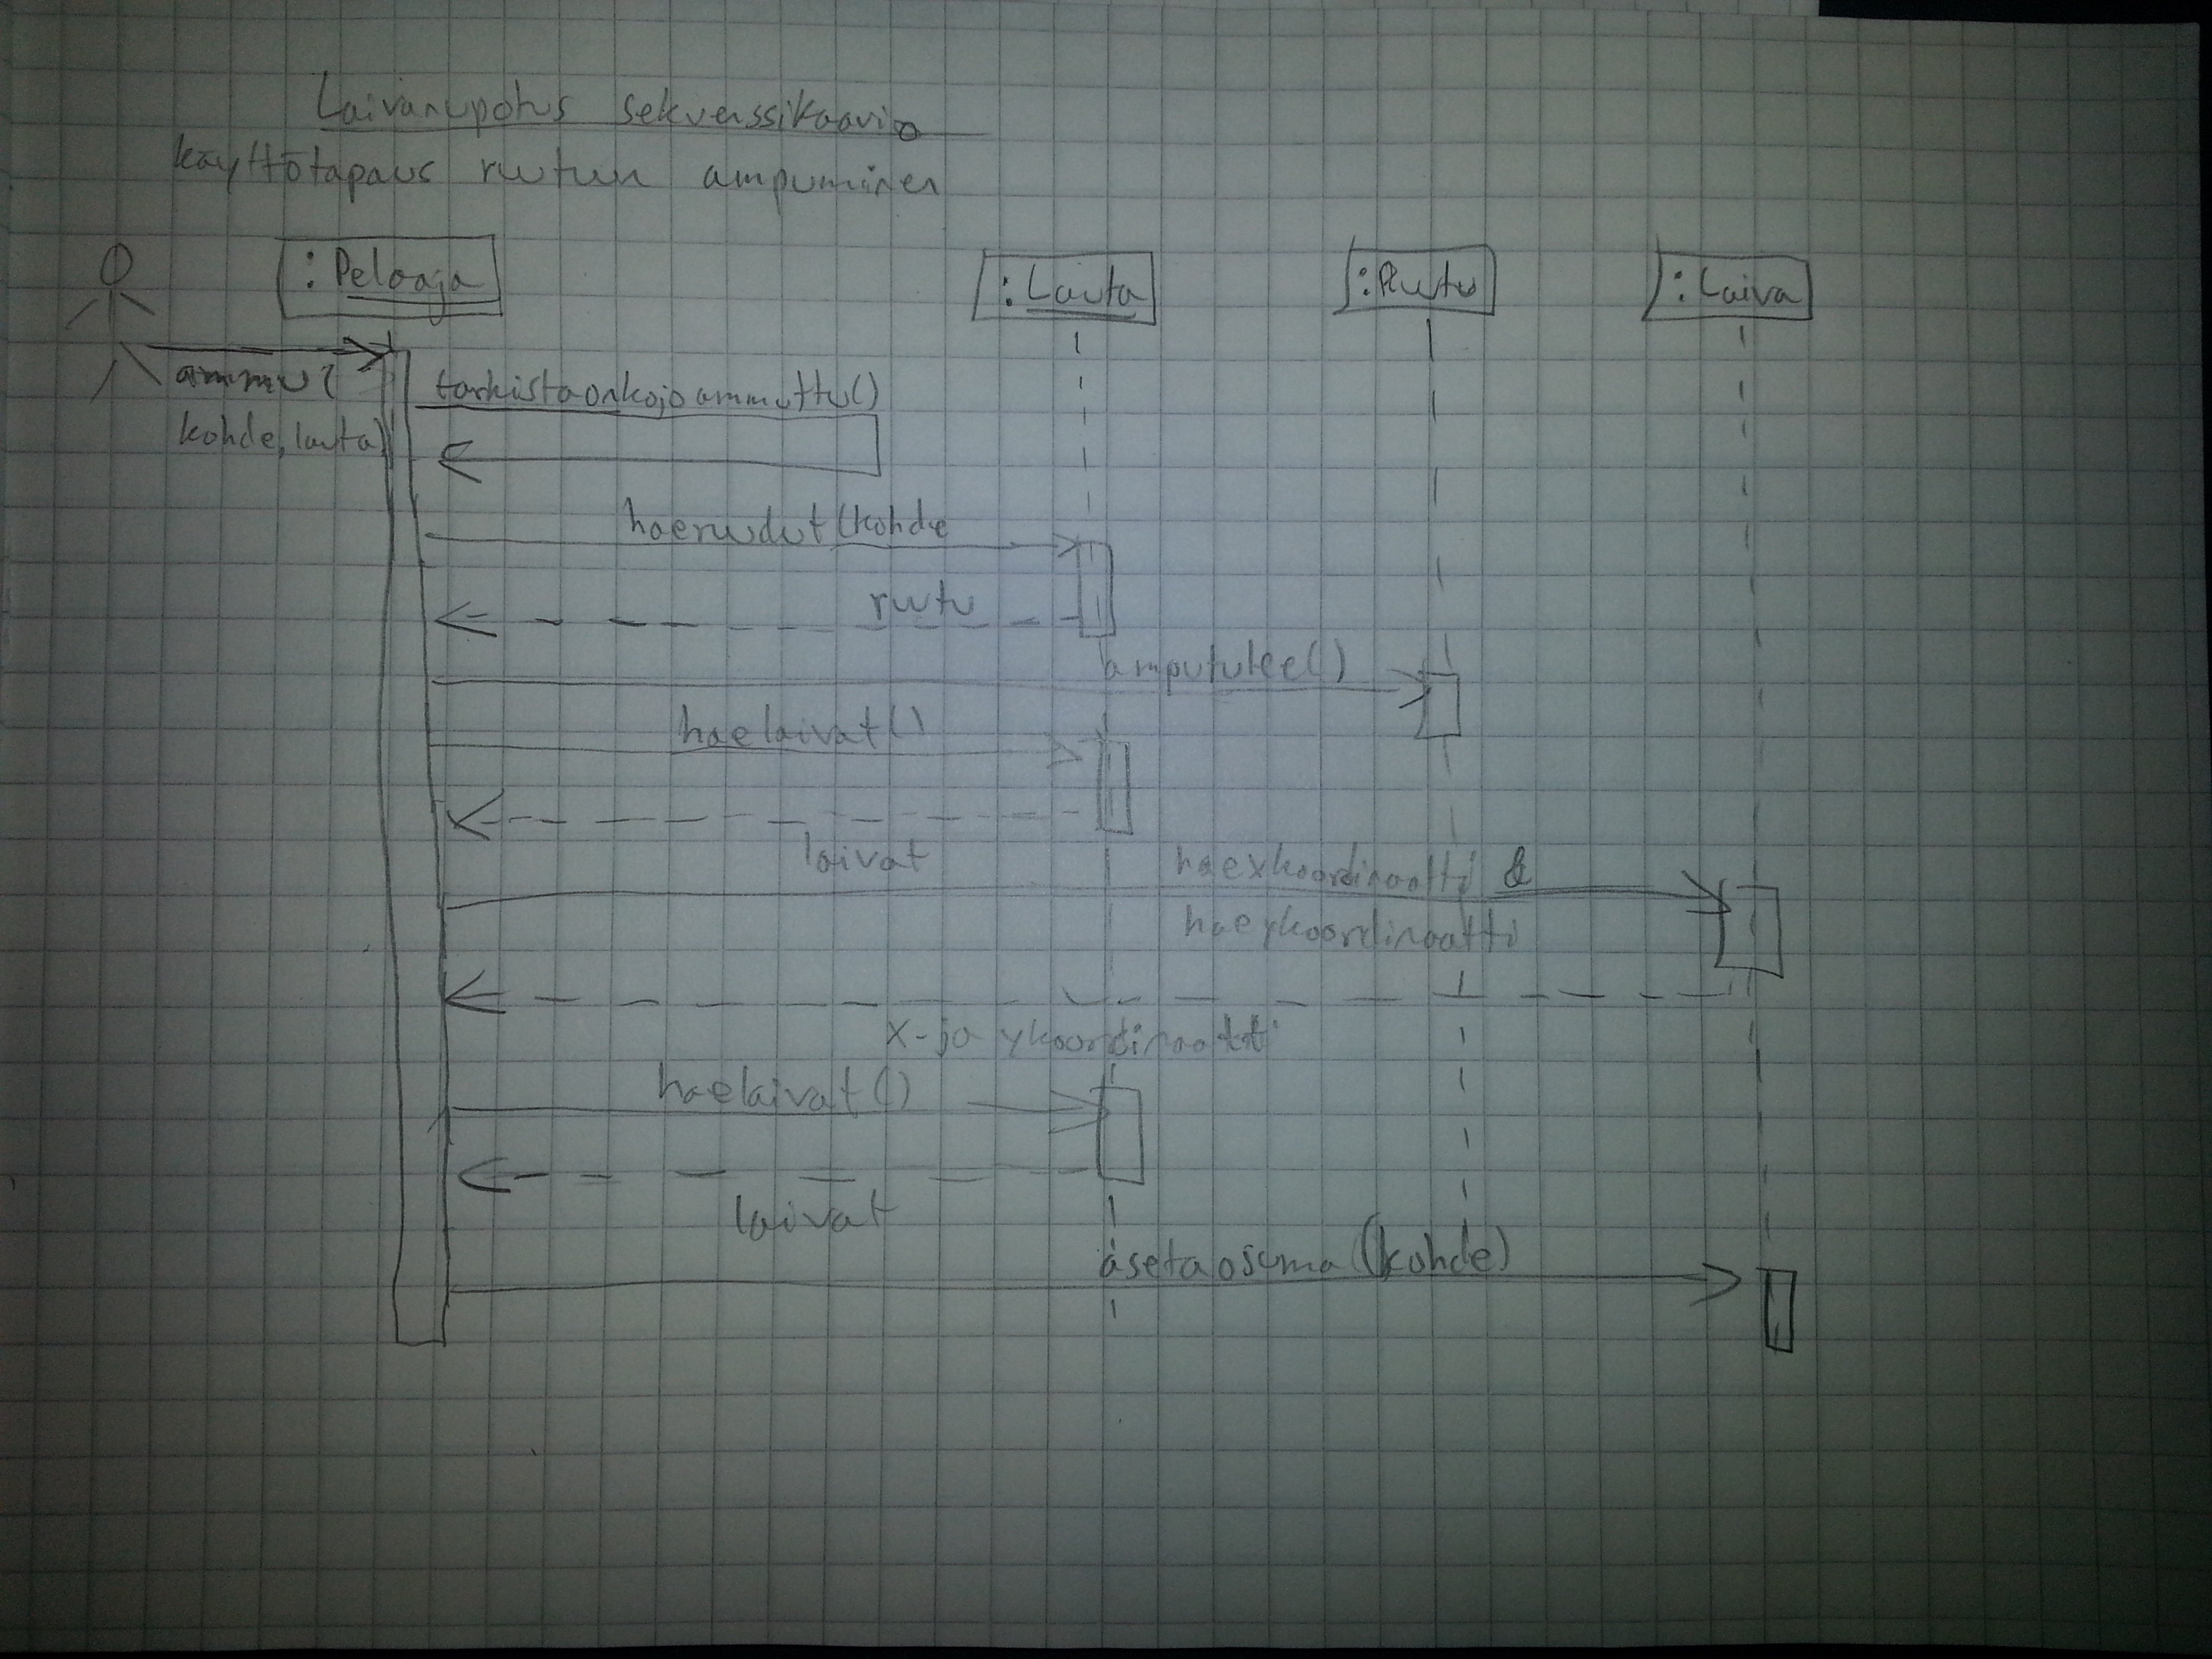 Laivanupotus sekvenssikaavio
käyttötapaus ruutuun ampuminen
:Pelaaja
:Lauta
:Ruutu
:Laiva
ammu(
kohde, lauta)
tarkistaonkojoammuttu()
haeruudut(kohde
ruutu
amputulee()
haelaivat()
laivat
haexkoordinaatti &
haeykoordinaatti
x-ja ykoordinaatti
haelaivat()
laivat
asetaosuma(kohde)